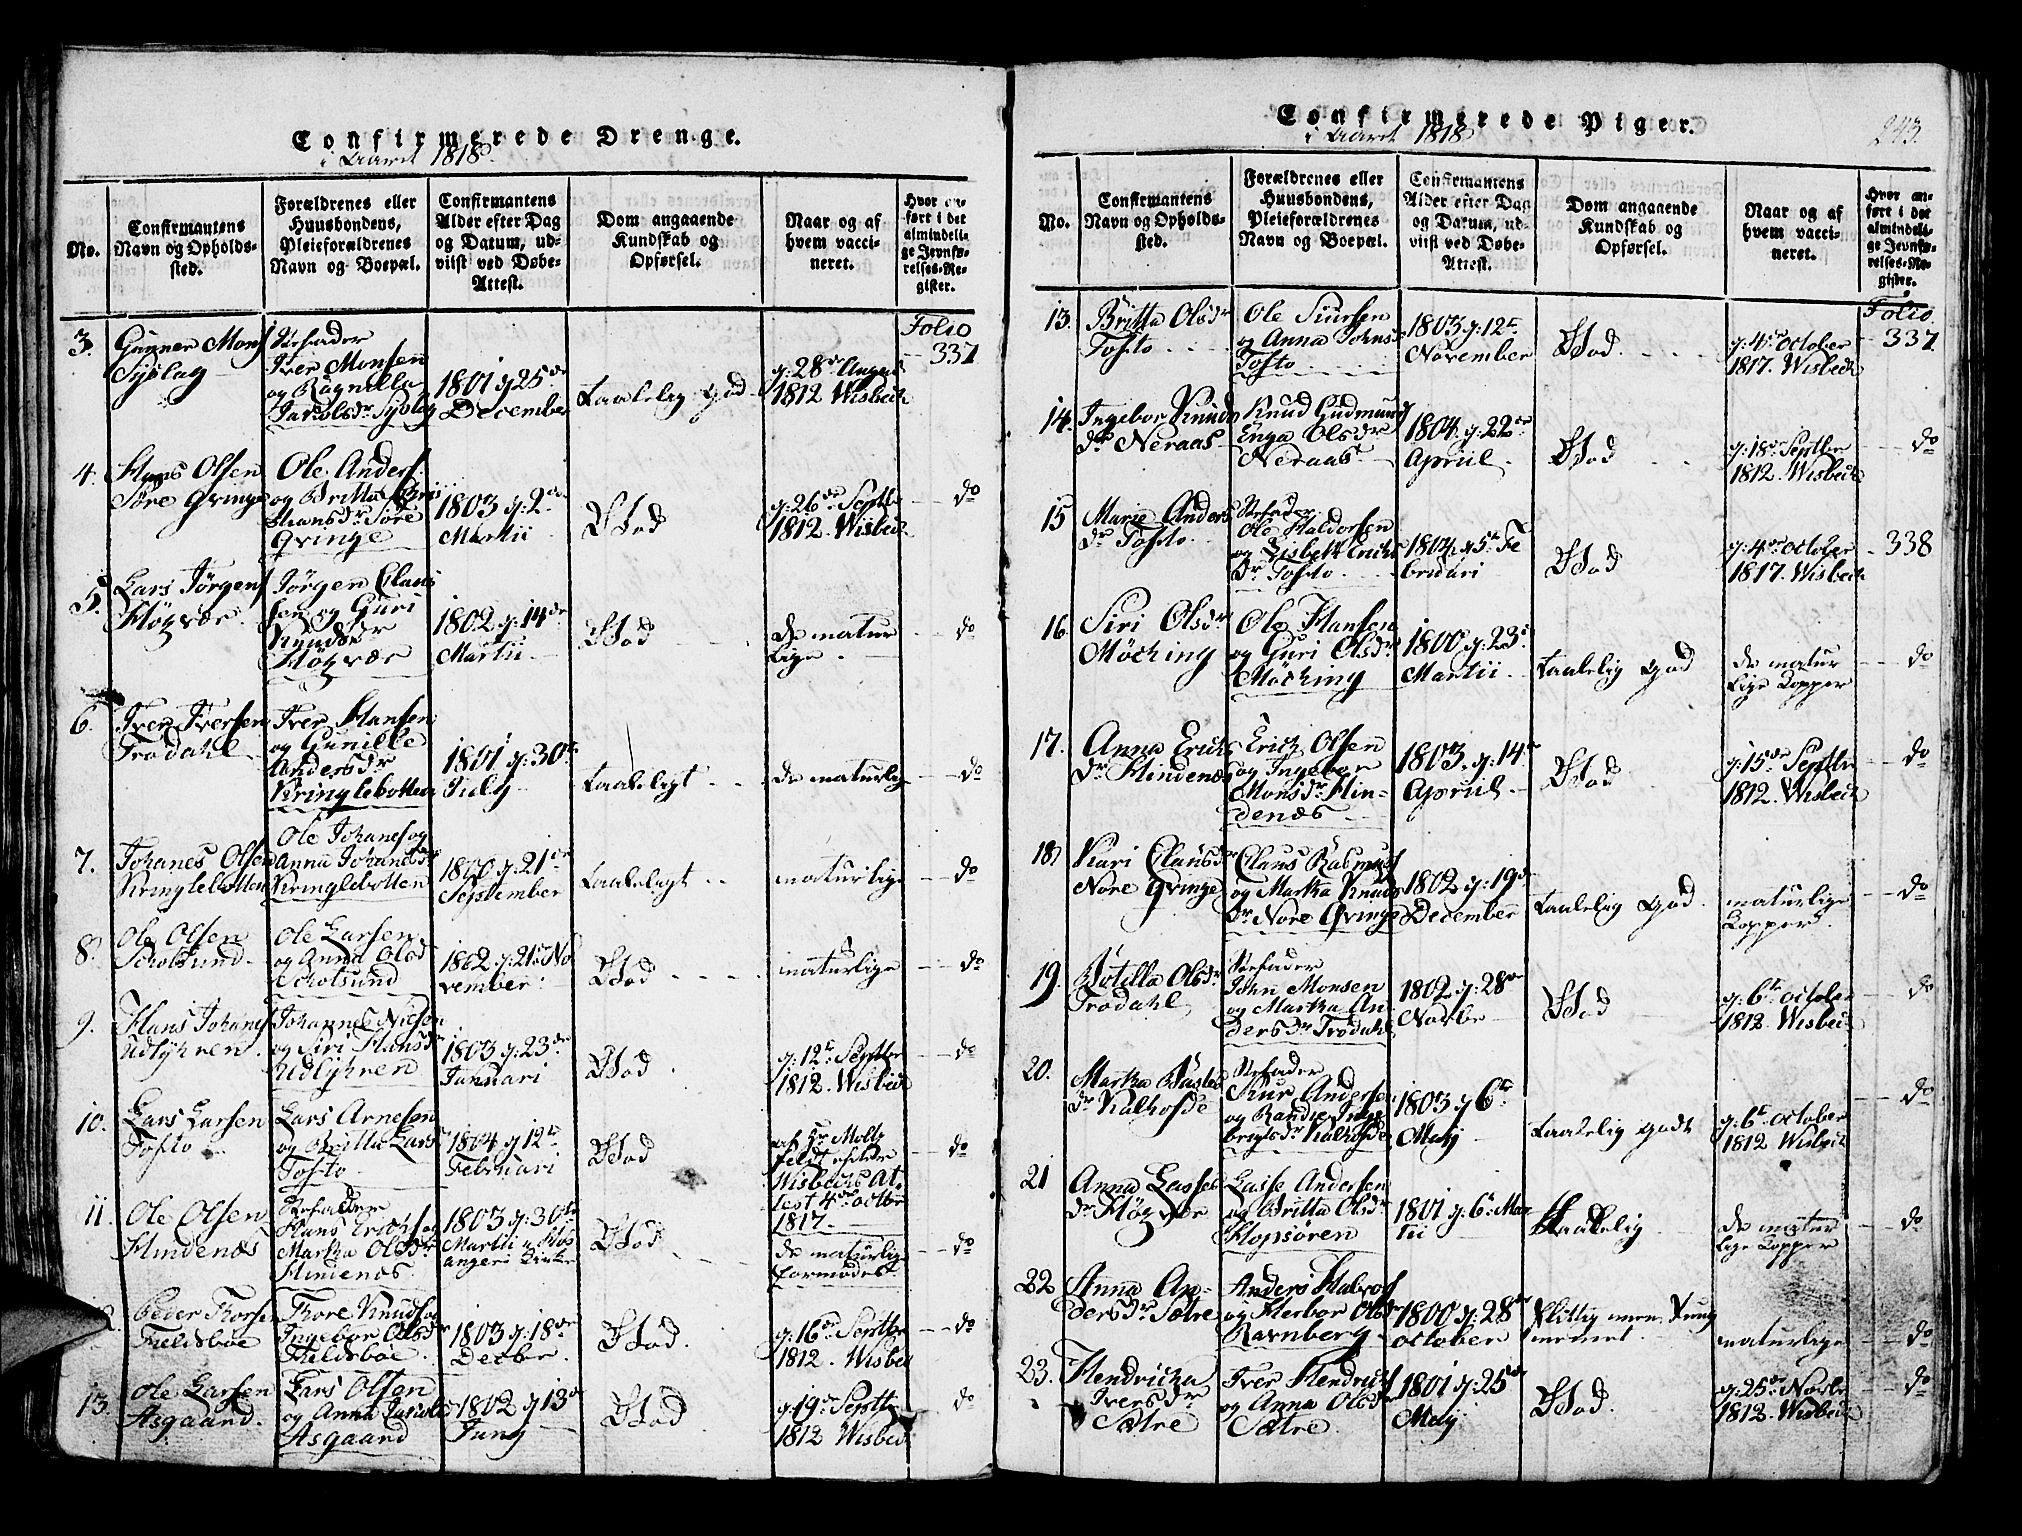 Confirmerede Drenge.
i Aaret 1818
No.
Confirmantens
Navn og Opholds-
sted.
Forældrenes eller
Huusbondens,
Pleieforældrenes
Navn og Boepæl.
Confirmantens
Alder efter Dag
og Datum, ud-
viist ved Døbe-
Attest.
Dom angaaende
Kundskab og
Opførsel.
Naar og af
hvem vacci-
neret.
Hvor an-
ført i det
almindeli-
ge Jevnfø-
relses-Re-
gister.
Folio
3.
Gunner Mons
Syslag
Stefader
Iver Monsen
og Ragnilla
Jacobsdr Syslag
1801 g: 25de
December
Taalelig God
g: 28de August
1812 Wisbech
337
4.
Hans Olsen
Søre Qvinge
Ole Anders
og Britta
Hansdr Søre
Qvinge
1803 g: 2de
Martii
God
g: 26de Septbr
1812. Wisbech
do
5.
Lars Jørgens
Høgvær
Jørgen Claus
sen og Guri
Knudsdr
Høgvær
1802 g: 14de
Martii
God
de natur
lige
do
6.
Iver Iversen
Trodahl
Iver Hansen
og Gunille
Andersdr
Kringlebotten
1801 g: 30te
July
Taaleligt
de naturlige
do
7.
Johanes Olsen
Kringlebotten
Ole Johanes og
Anna Johanesdr
Kringlebotten
1800 g: 21de
September
Taaleligt
naturlige
do
8.
Ole Olsen
Scholsund
Ole Larsen
og Anna Olsd
Scholsund
1802 g: 21de No
vember
God
naturlige
do
9.
Hans Johanes
Udlyhren
Johannes Nielsen
og Siri Hansdr
Udlyhren
1803 g: 23de
Januari
God
g: 12te Septbr
1812. Wisbech
do
10.
Lars Larsen
Tofto
Lars Arnesen
og Britta Lars
Tofto
1804 g: 12te
Februari
God
af Hr Moltz
feldt efter
Wisbechs At
test 4de octbr
1817.
do
11.
Ole Olsen
Hindenæs
Stefader
Hans Erichsen
Marka Olsdr
Hindenæs
1803 g: 30te
Martii
God
de naturlige
formodes
do
Peder Thorsen
Fieldsboe
Thore Knudsen
Ingebor Olsdr
Fieldsboe
1803 g: 18de
Decbr.
God.
g: 16de Septbr
1812. Wisbech
do
13.
Ole Larsen
Asgaard.
Lars Olsen
og Anna Jacobs
Asgaard
1802 g 13de
Juny
God
g: 19de Septbr
1812 Wisbech
do
Confirmerede Piger.
i Aaret 1818
243.
No.
Confirmantens
Navn og Opholds-
sted.
Forældrenes eller
Huusbondens,
Pleieforældrenes
Navn og Boepæl.
Confirmantens
Alder efter Dag
og Datum, ud-
viist ved Døbe-
Attest.
Dom angaaende
Kundskab og
Opførsel.
Naar og af
hvem vacci-
neret.
Hvor an-
ført i det
almindeli-
ge Jevnfø-
relses-Re-
gister.
Folio
13.
Britta Olsdr
Tofto
Ole Siursen
og Anna Johns
Tofto
1803 g: 12te
November
God
g: 4de october
1817. Wisbech
337
14.
Ingebor Knuds
dr Neraas
Knud Gudmunds
Enga Olsdr
Neraas
1804. g: 22de
Apriil
God
g: 18de Septbr
1812. Wisbech
do
15
Marie Anders
dr Tofto
Stefader
Ole Haldorsen
og Lisbett Erichs
dr Tofto
1804 g 5te Fe
bruari
God
g: 4de october
1817. Wisbech
338
16.
Siri Olsdr
Möching
Ole Hansen
og Guri Olsdr
Möching
1800 g: 23de
Martii
Taalelig God
de natur
lige Kopper
do
17.
Anna Erichs
dr Hindenæs
Erich Olsen
og Ingebor
Monsdr Hin-
denæs
1803. g: 14de
Apriil
God
g: 15de Septbr
1812. Wisbech
do
18
Kari Clausdr
Nore Qvinge
Claus Rasmuss
og Marka Knuds
dr Nore Qvinge
1802 g: 19de
December
Taalelig God.
naturlige
Kopper
do
19.
Botilla Olsdr
Trodahl
Stefader
John Monsen
og Marka An
dersdr Trodahl
1802 g: 28de
Novbr
God
g: 6te october
1812. Wisbech
do
20.
Marka Baste
dr Kalhofde
Stefader
Siur Andersen
og Randie Inge
brigtsdr Kalhofde
1803 g 6te
Maij
Taalelig godt
g: 6te october
1812 Wisbech
do
21
Anna Lasses
dr Høgvær
Lasse Andersen
og Britta Olsdr
Hopsøren
1801 g: 6te Mar
tii
Taalelig
de natur
lige Kopper
do
22
Anna An-
dersdr Sætre
Anders Halvors
og Herbor Olsdr
Ravnberg
1800 g: 28de
october
Flittig men tung
nemmet.
naturlige
do
23.
Hendricka
Iversdr
Sætre
Iver Hendrichs
og Anna Olsdr
Sætre
1801 g: 25de
Maij
God.
g: 25de Novbr
1812. Wisbech
do